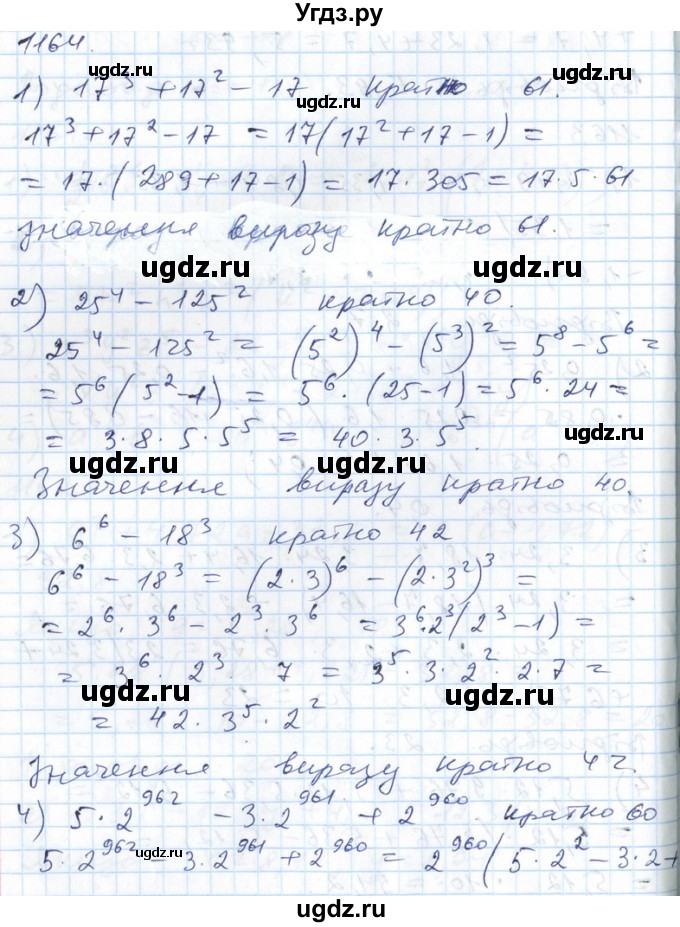 Угдз.ру
1164.
ugdz.ru
1) 17³ + 17² - 17 кратно 61.
ugdz.ru ugdz.ru
17³ + 17² - 17 = 17(17² + 17 - 1) =
= 17·(289 + 17 - 1) = 17·305 = 17·5·61
значення виразу кратно 61.
ugdz.ru ugdz.ru
2) 25⁴ - 125² кратно 40.
25⁴ - 125² = (5²)⁴ - (5³)² = 5⁸ - 5⁶ =
= 5⁶(5² - 1) = 5⁶·(25 - 1) = 5⁶·24 =
= 3·8·5·5⁵ = 40·3·5⁵.
ugdz.ru ugdz.ru ugdz.ru
Значення виразу кратно 40.
3) 6⁶ - 18³ кратно 42
ugdz.ru
6⁶ - 18³ = (2·3)⁶ - (2·3²)³ =
= 2⁶·3⁶ - 2³·3⁶ = 3⁶·2³(2³ - 1) =
= 3⁶·2³·7 = 3⁵·3·2²·2·7 =
ugdz.ru ugdz.ru
= 42·3⁵·2²
ugdz.ru
Значення виразу кратно 42.
4) 5·2⁹⁶² - 3·2⁹⁶¹ + 2⁹⁶⁰ кратно 60
ugdz.ru ugdz.ru
5·2⁹⁶² - 3·2⁹⁶¹ + 2⁹⁶⁰ = 2⁹⁶⁰(5·2² - 3·2+
ugdz.ru
ugdz.ru